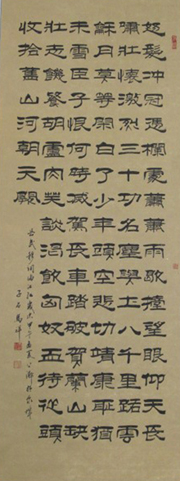 怒髮冲冠憑欄處蕭蕭雨歇擡望眼仰天長
嘯壯懷激烈三十功名塵與土八千里路雲
和月莫等閒白了少年頭空悲切靖康恥猶
未雪臣子恨何時滅駕長車踏破賀蘭山缺
壯志饑餐胡虜肉笑談渴飲匈奴血待從頭
收拾舊山河朝天闕
岳武穆詞滿江紅